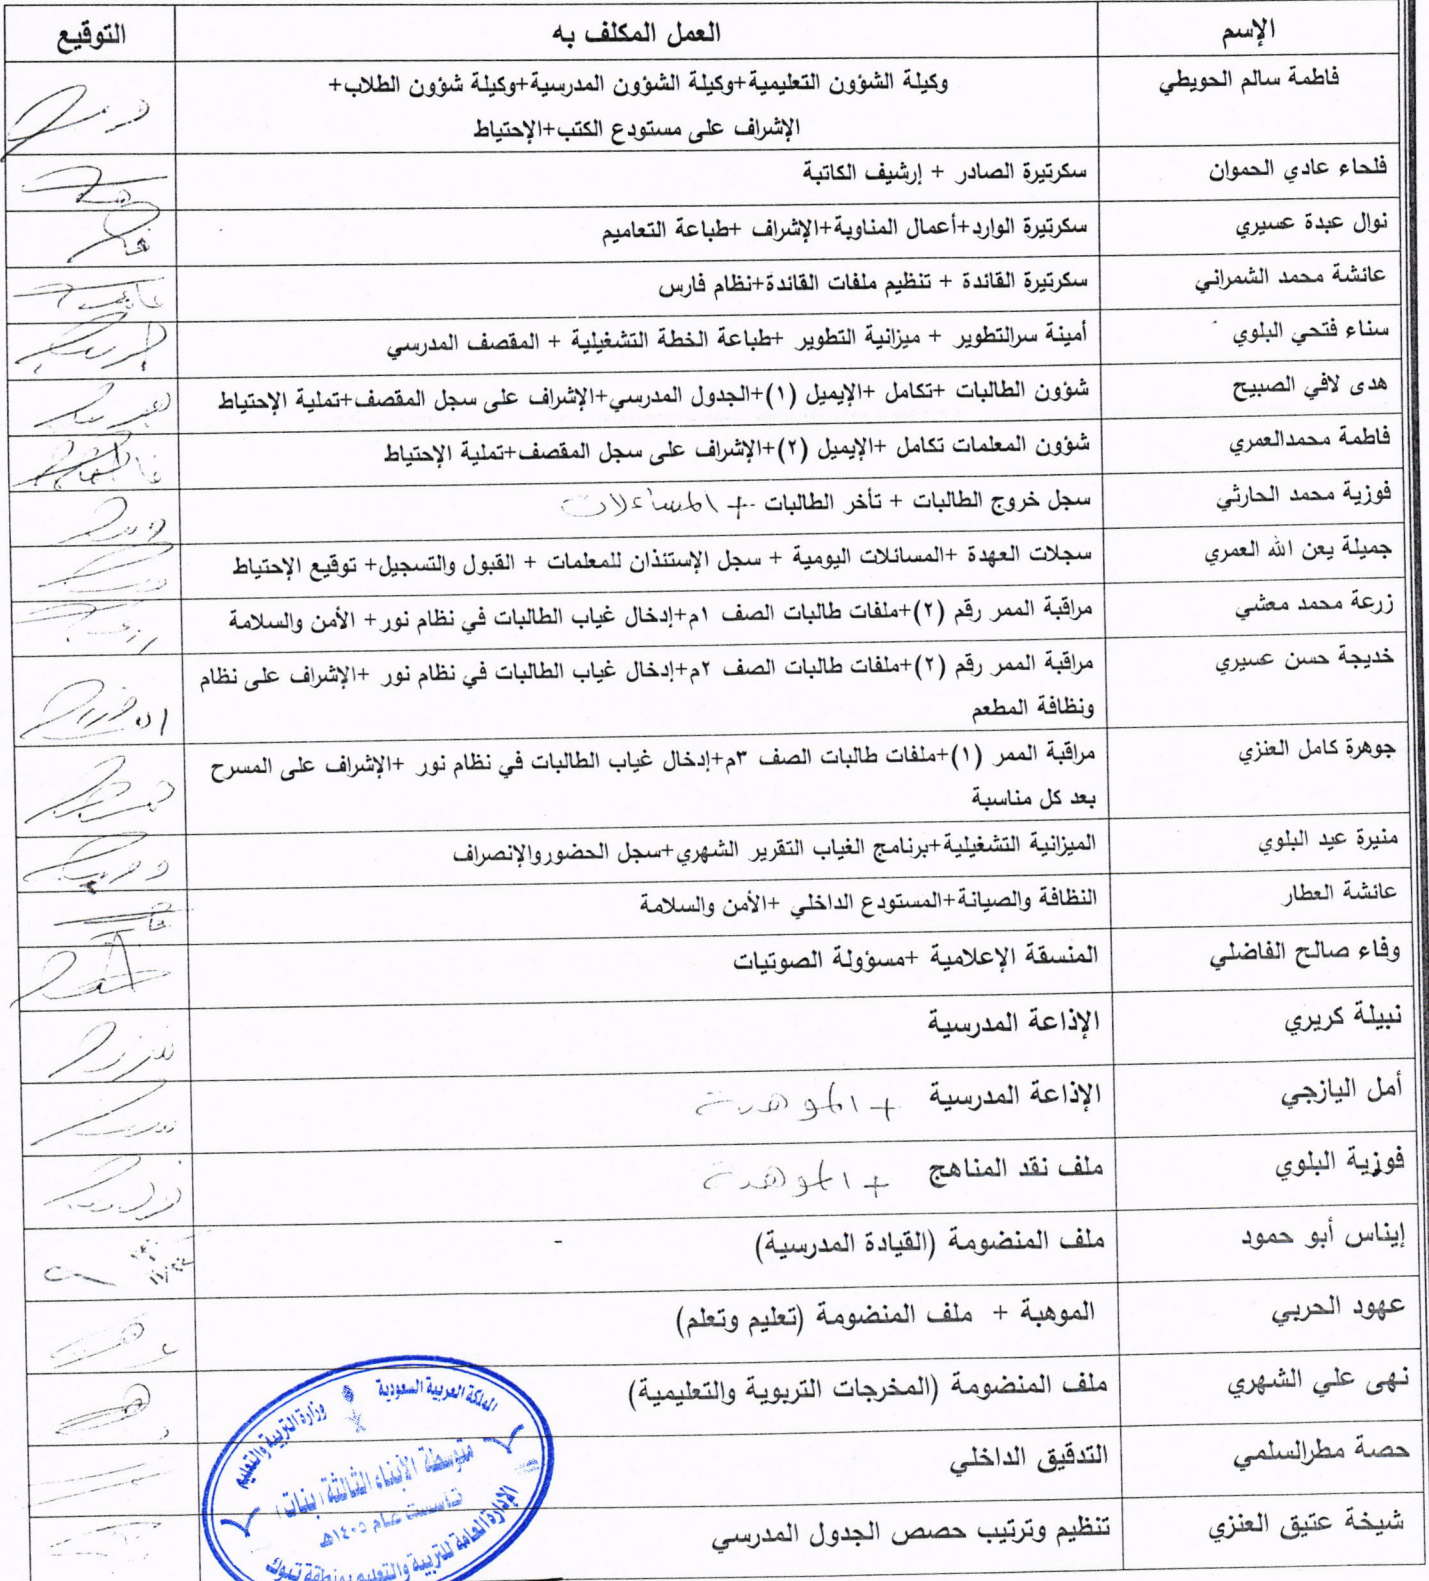 الإسم العمل المكلف به التوقيع
فاطمة سالم الحويطي وكيلة الشؤون التعليمية+وكيلة الشؤون المدرسية+وكيلة شؤون الطلاب+
الإشراف على مستودع الكتب+الإحتياط
فلحاء عادي الحموان سكرتيرة الصادر + إرشيف الكاتبة
نوال عبدة عسيري سكرتيرة الوارد+أعمال المناوبة+الإشراف +طباعة التعاميم
عائشة محمد الشمراني سكرتيرة القائدة + تنظيم ملفات القائدة+نظام فارس
سناء فتحي البلوي أمينة سرالتطوير + ميزانية التطوير +طباعة الخطة التشغيلية + المقصف المدرسي
هدى لافي الصبيح شؤون الطالبات +تكامل +الإيميل (١)+الجدول المدرسي+الإشراف على سجل المقصف+تملية الإحتياط
فاطمة محمدالعمري شؤون المعلمات تكامل +الإيميل (٢)+الإشراف على سجل المقصف+تملية الإحتياط
فوزية محمد الحارثي سجل خروج الطالبات + تأخر الطالبات + المساءلات
جميلة يعن الله العمري سجلات العهدة +المسائلات اليومية + سجل الإستئذان للمعلمات + القبول والتسجيل+ توقيع الإحتياط
زرعة محمد معشي مراقبة الممر رقم (٢)+ملفات طالبات الصف ١م+إدخال غياب الطالبات في نظام نور+ الأمن والسلامة
خديجة حسن عسيري مراقبة الممر رقم (٢)+ملفات طالبات الصف ٢م+إدخال غياب الطالبات في نظام نور +الإشراف على نظام
ونظافة المطعم
جوهرة كامل العنزي مراقبة الممر (١)+ملفات طالبات الصف ٣م+إدخال غياب الطالبات في نظام نور +الإشراف على المسرح
بعد كل مناسبة
منيرة عيد البلوي الميزانية التشغيلية+برنامج الغياب التقرير الشهري+سجل الحضوروالإنصراف
عائشة العطار النظافة والصيانة+المستودع الداخلي +الأمن والسلامة
وفاء صالح الفاضلي المنسقة الإعلامية +مسؤولة الصوتيات
نبيلة كريري الإذاعة المدرسية
أمل اليازجي الإذاعة المدرسية + الموهبة
فوزية البلوي ملف نقد المناهج + الموهبة
إيناس أبو حمود ملف المنضومة (القيادة المدرسية)
عهود الحربي الموهبة + ملف المنضومة (تعليم وتعلم)
نهى علي الشهري ملف المنضومة (المخرجات التربوية والتعليمية)
حصة مطرالسلمي التدقيق الداخلي
شيخة عتيق العنزي تنظيم وترتيب حصص الجدول المدرسي
المملكة العربية السعودية
وزارة التربية والتعليم
متوسطة الأبناء الثالثة (بنات)
تأسست عام ١٤٠٥هـ
الإدارة العامة للتربية والتعليم بمنطقة تبوك